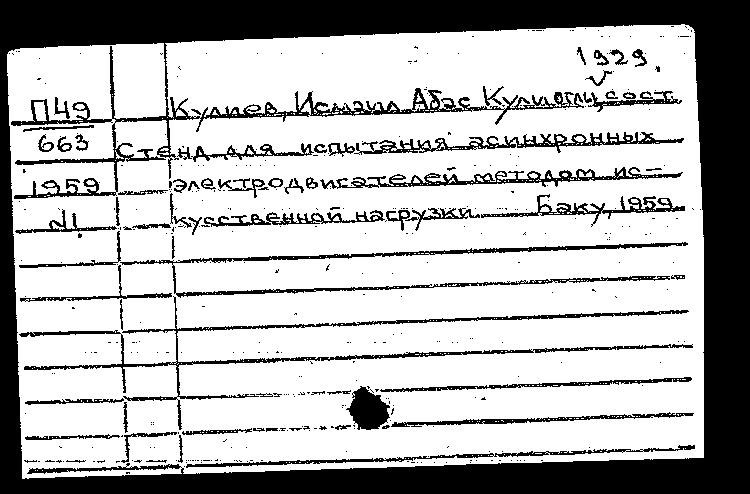 1929.
П49 Кулиев, Исмаил Абас Кули оглы, сост.
663 Стенд для испытания асинхронных
1959 электродвигателей методом ис-
№1 кусственной нагрузки Баку, 1959